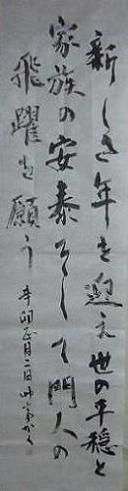 新しき年を迎え世の平穏と
家族の安泰そして門人の
飛躍を願う
辛卯正月二日